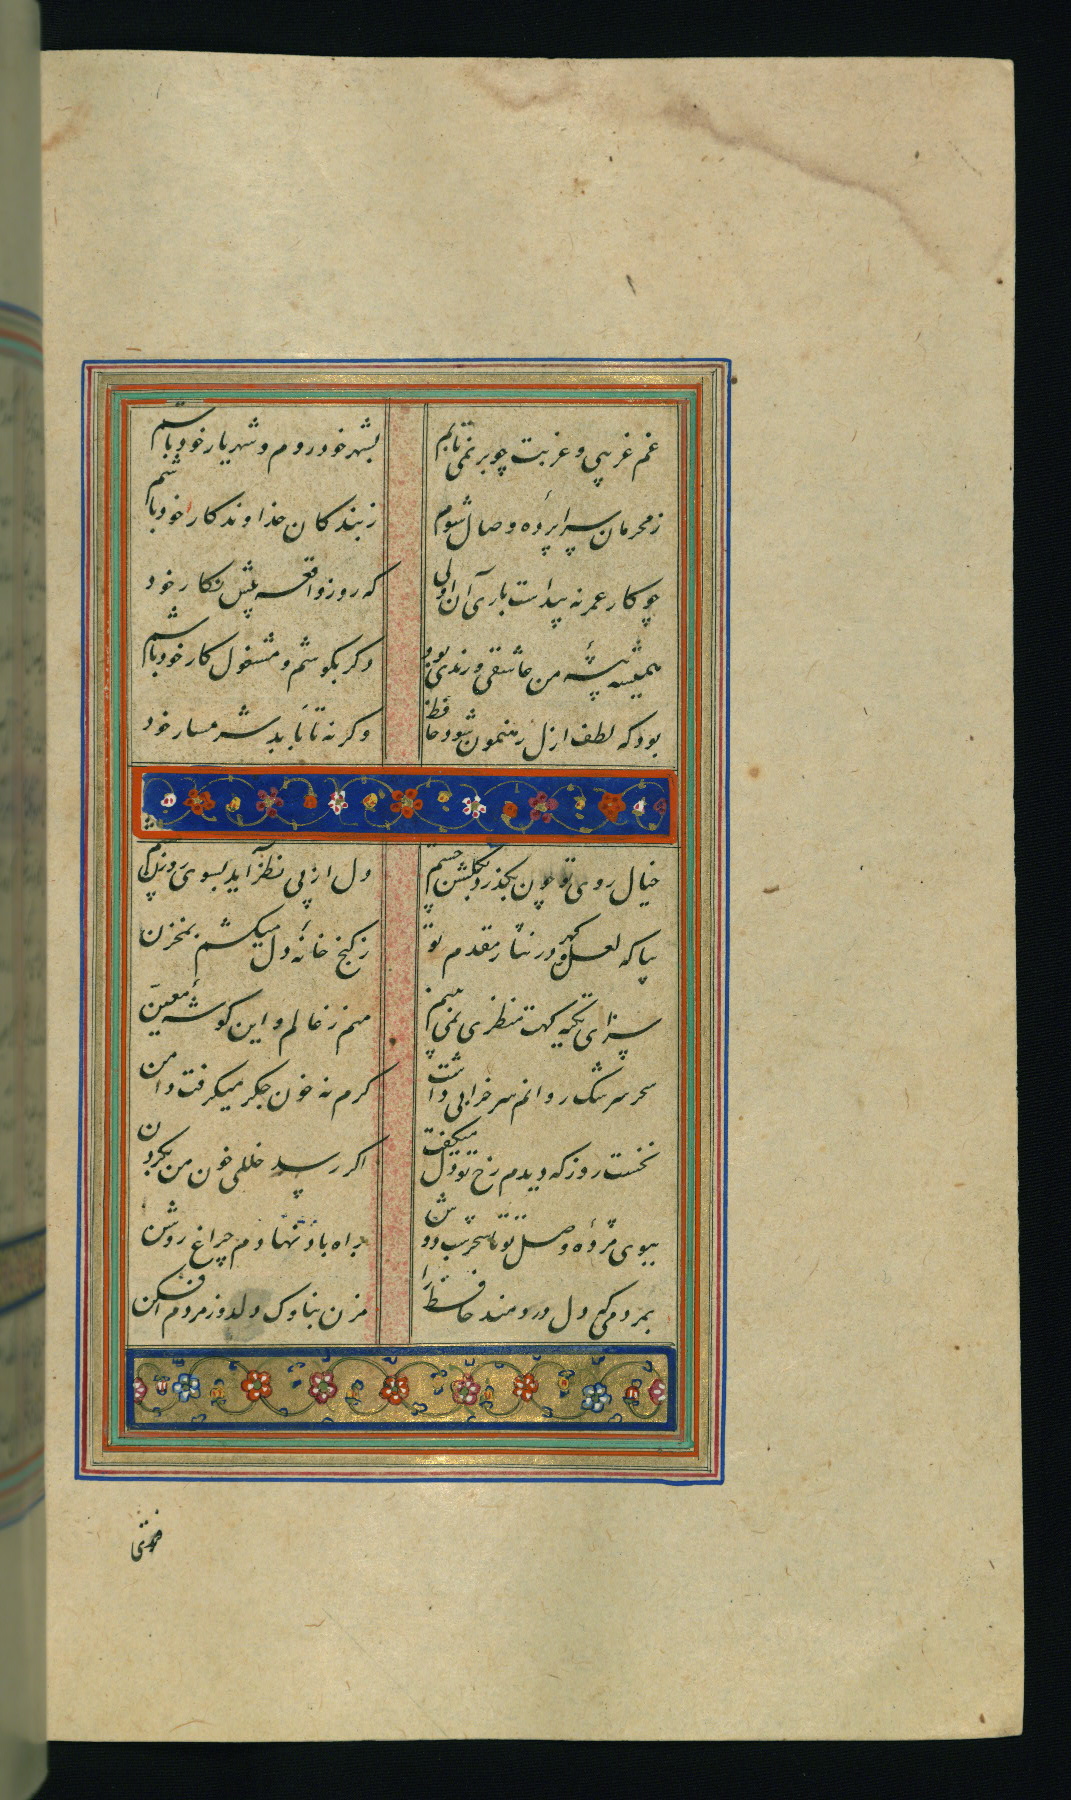 غم غریبی و غربت چو بر نمی تابم بشهر خود روم و شهریار خود باشم
ز محرمان سراپرده وصال شوم ز بندکان خداوندکار خود باشم
چو کار عمر نه پیداست باری آن اولی که روز واقعه پیش نکار خود
همیشه پیشه من عاشقی و رندی بود دکر بکوشم و مشغول کار خود باشم
بود که لطف ازل رهنمون شود حافظ وکرنه تا بابد شرمسار خود
خیال روی تو چون بکذرد بکلشن چشم دل از پی نظر آید بسوی روزن
بیا که لعل و کهر در نثار مقدم تو ز کنج خانه دل میکشم بمخزن
سزای تکیه کهت منظری نمی بینم منم ز عالم و این کوشه معین
سحر سرشک روانم سر خرابی داشت کرم نه خون جکر میکرفت دامن
نخست روز که دیدم رخ تو دل میکفت اکر رسد خللی خون من بکردن
ببوی مژده وصل تو تا سحر شب دوش براه باد نهادم چراغ روشن
بمردمی که دل دردمند حافظ را مزن بناوک دلدوز مردم افکن